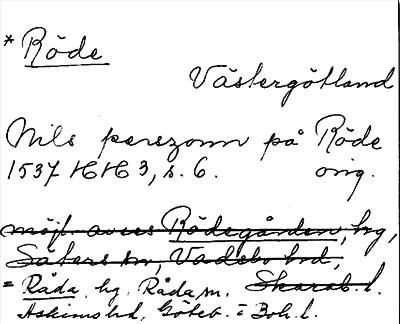 * Röde
Västergötland
Nils perszonn på Röde
1537 HH 3, s. 6. orig.
möjl. avses Rödegården, hg,
Säters sn, Vadsbo hd,
= Råda, hg, Råda sn. Skarab. l.
Askims hd, Göteb. o Boh. l.